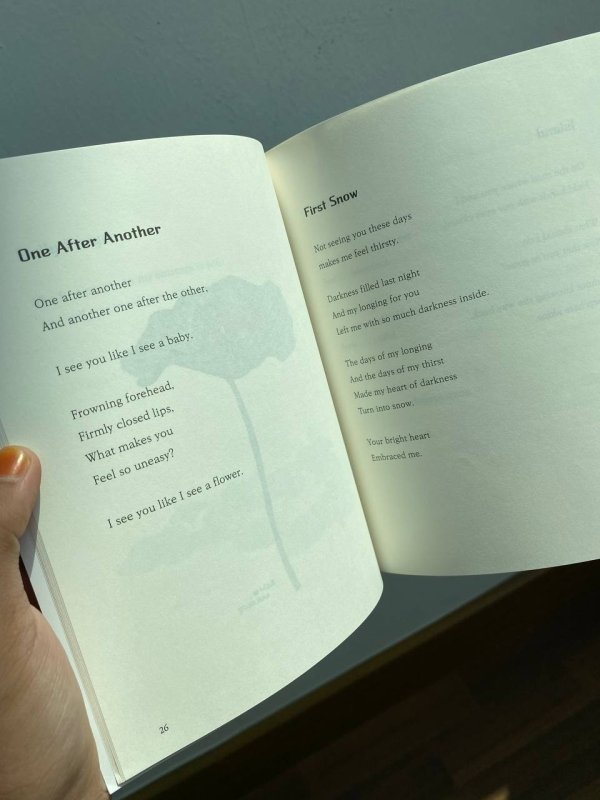 One After Another
One after another
And another one after the other.
I see you like I see a baby.
Frowning forehead.
Firmly closed lips.
What makes you
Feel so uneasy?
I see you like I see a flower.
26
First Snow
Not seeing you these days
makes me feel thirsty.
Darkness filled last night
And my longing for you
Left me with so much darkness inside.
The days of my longing
And the days of my thirst
Made my heart of darkness
Turn into snow.
Your bright heart
Embraced me.
Island